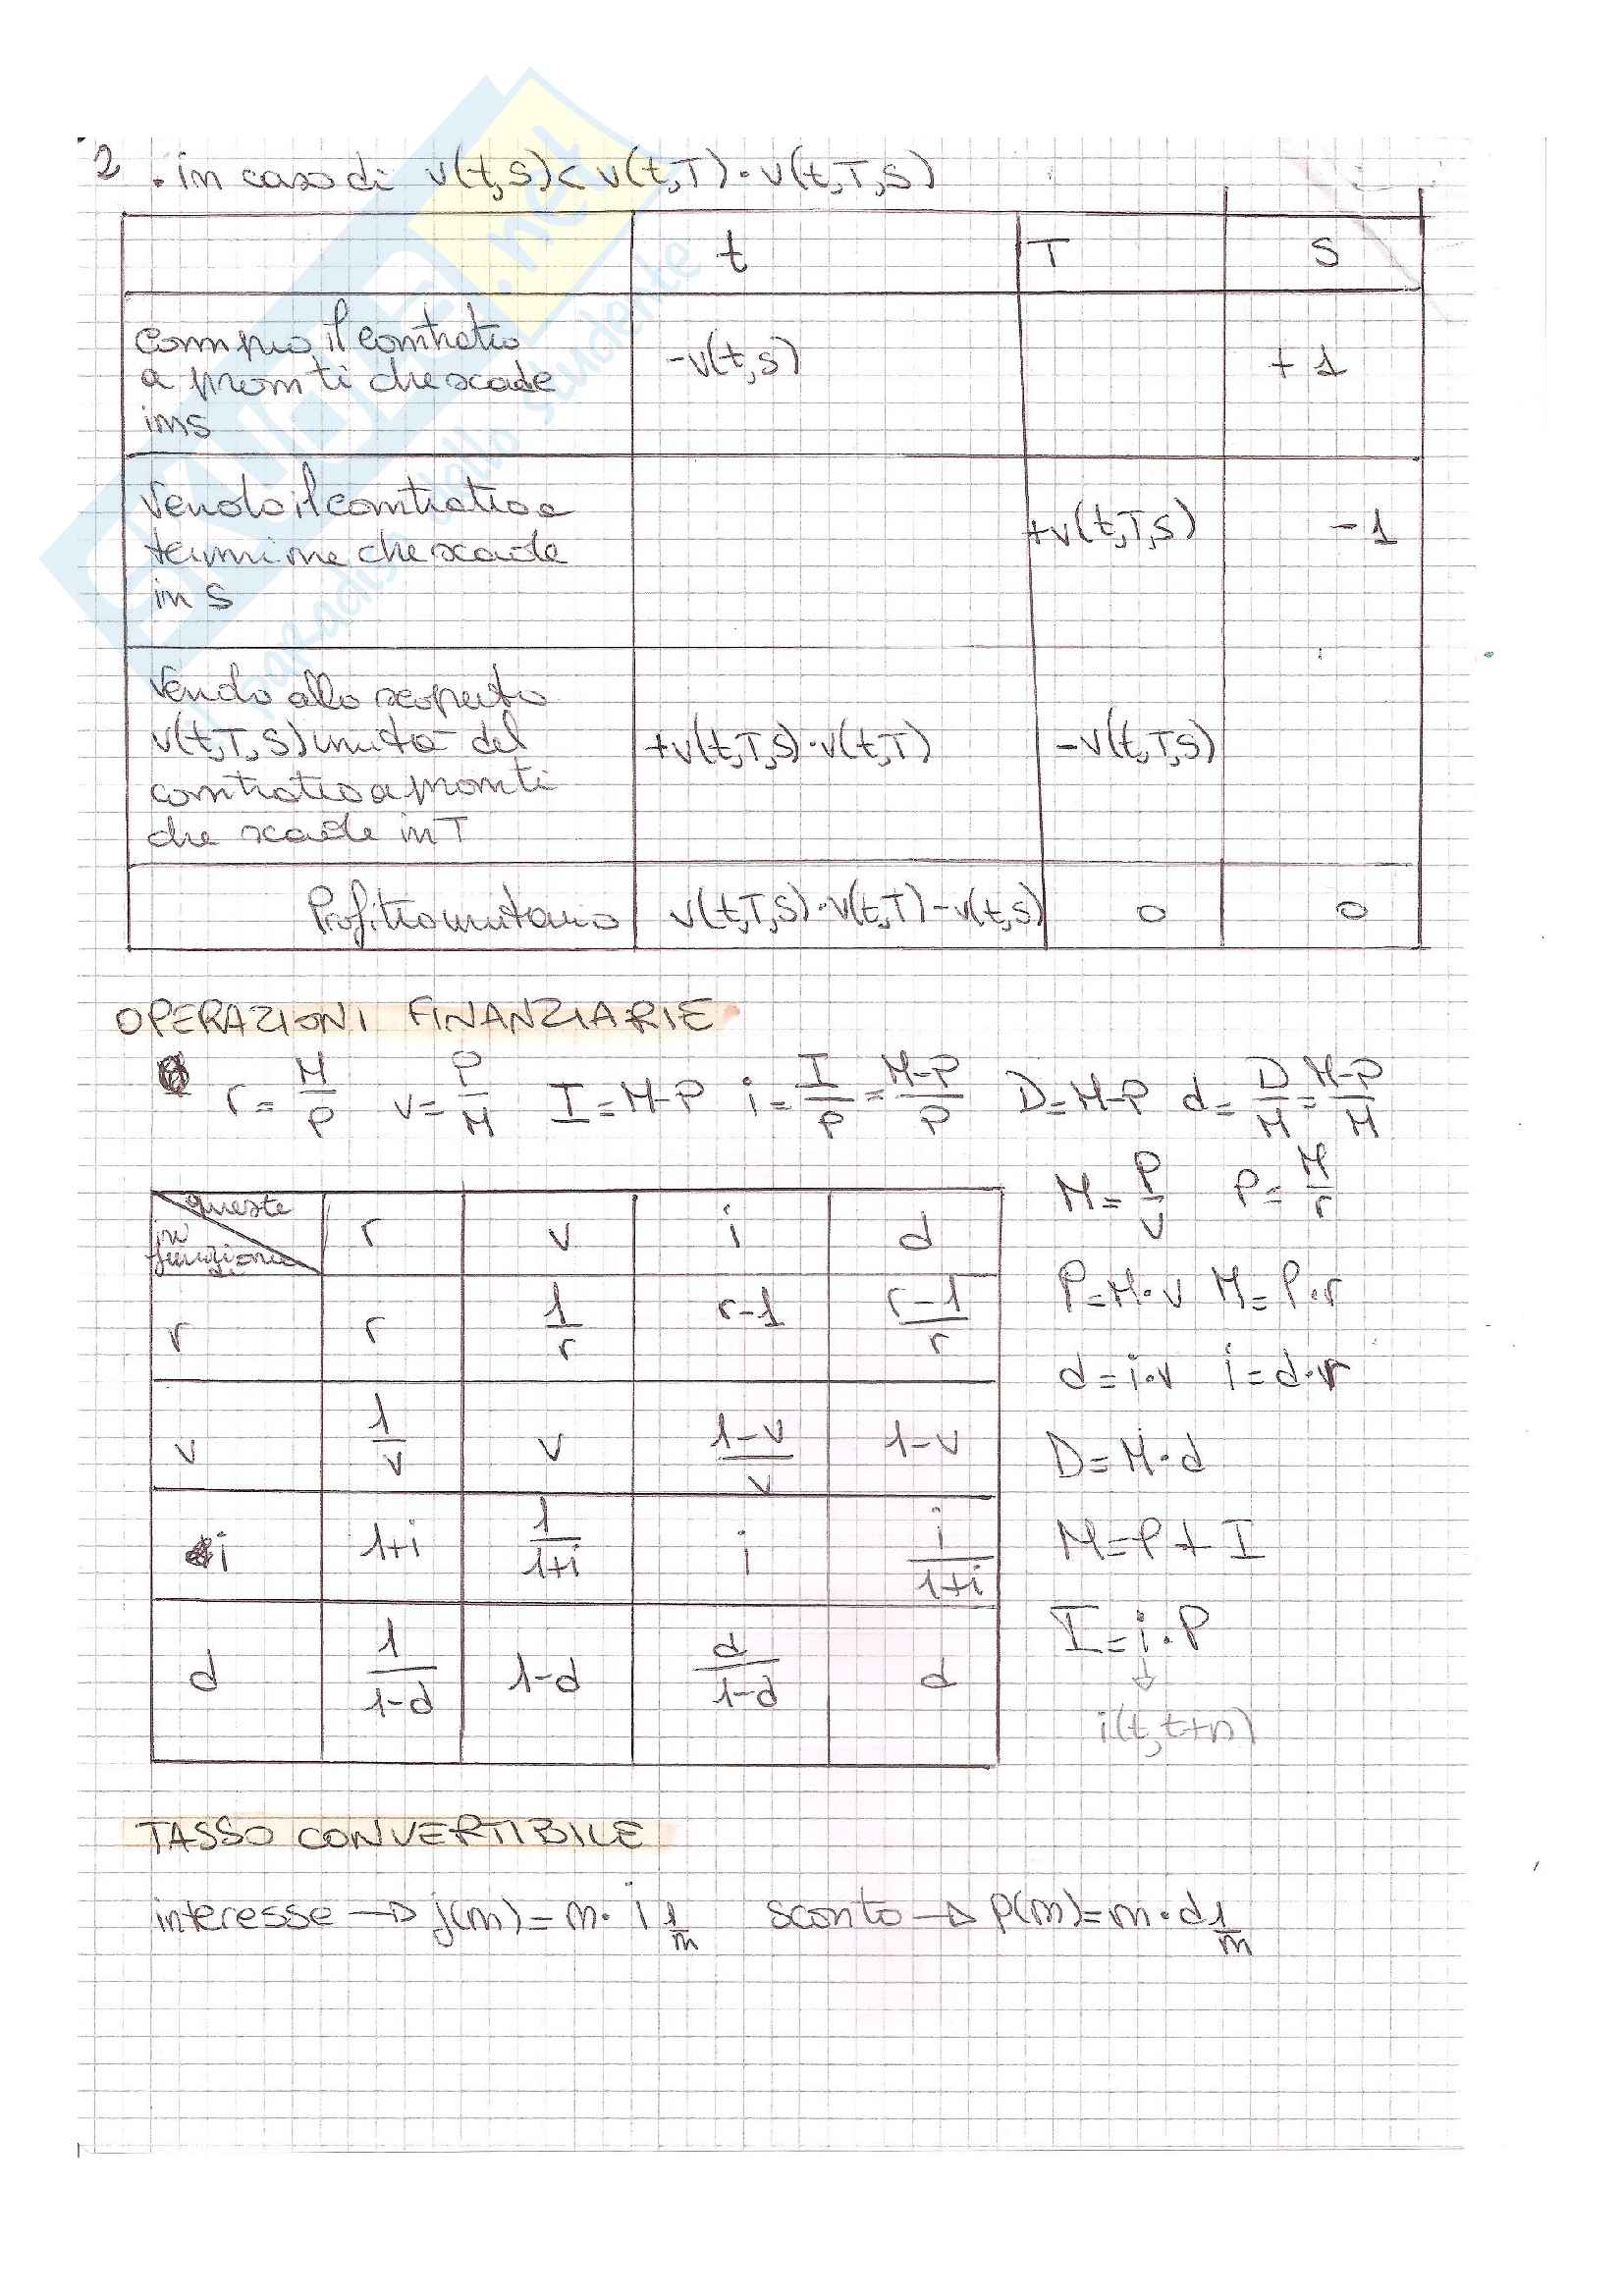 2 . in caso di v(t,S) < v(t,T) · v(t,T,S)
t T S
Compro il contratto
a pronti che scade
in S
-v(t,S) +1
Vendo il contratto a
termine che scade
in S
+v(t,T,S) -1
Vendo allo scoperto
v(t,T,S) unità del
contratto a pronti
che scade in T
+v(t,T,S)·v(t,T) -v(t,T,S)
Profitto unitario v(t,T,S)·v(t,T)-v(t,S) 0 0
OPERAZIONI FINANZIARIE
r = M/P v = P/M I = M-P i = I/P = M-P/P D = M-P d = D/M = M-P/M
queste
in funzione di
r v i d
r r 1/r r-1 r-1/r
v 1/v v 1-v/v 1-v
i 1+i 1/1+i i i/1+i
d 1/1-d 1-d d/1-d d
M = P/v P = M/r
P = M·v M = P·r
d = i·v i = d·r
D = M·d
M = P + I
I = i·P
↓
i(t,t+n)
TASSO CONVERTIBILE
interesse → j(m) = m · i 1/m sconto → p(m) = m · d 1/m
SKUOLA.net
il paradiso dello studente